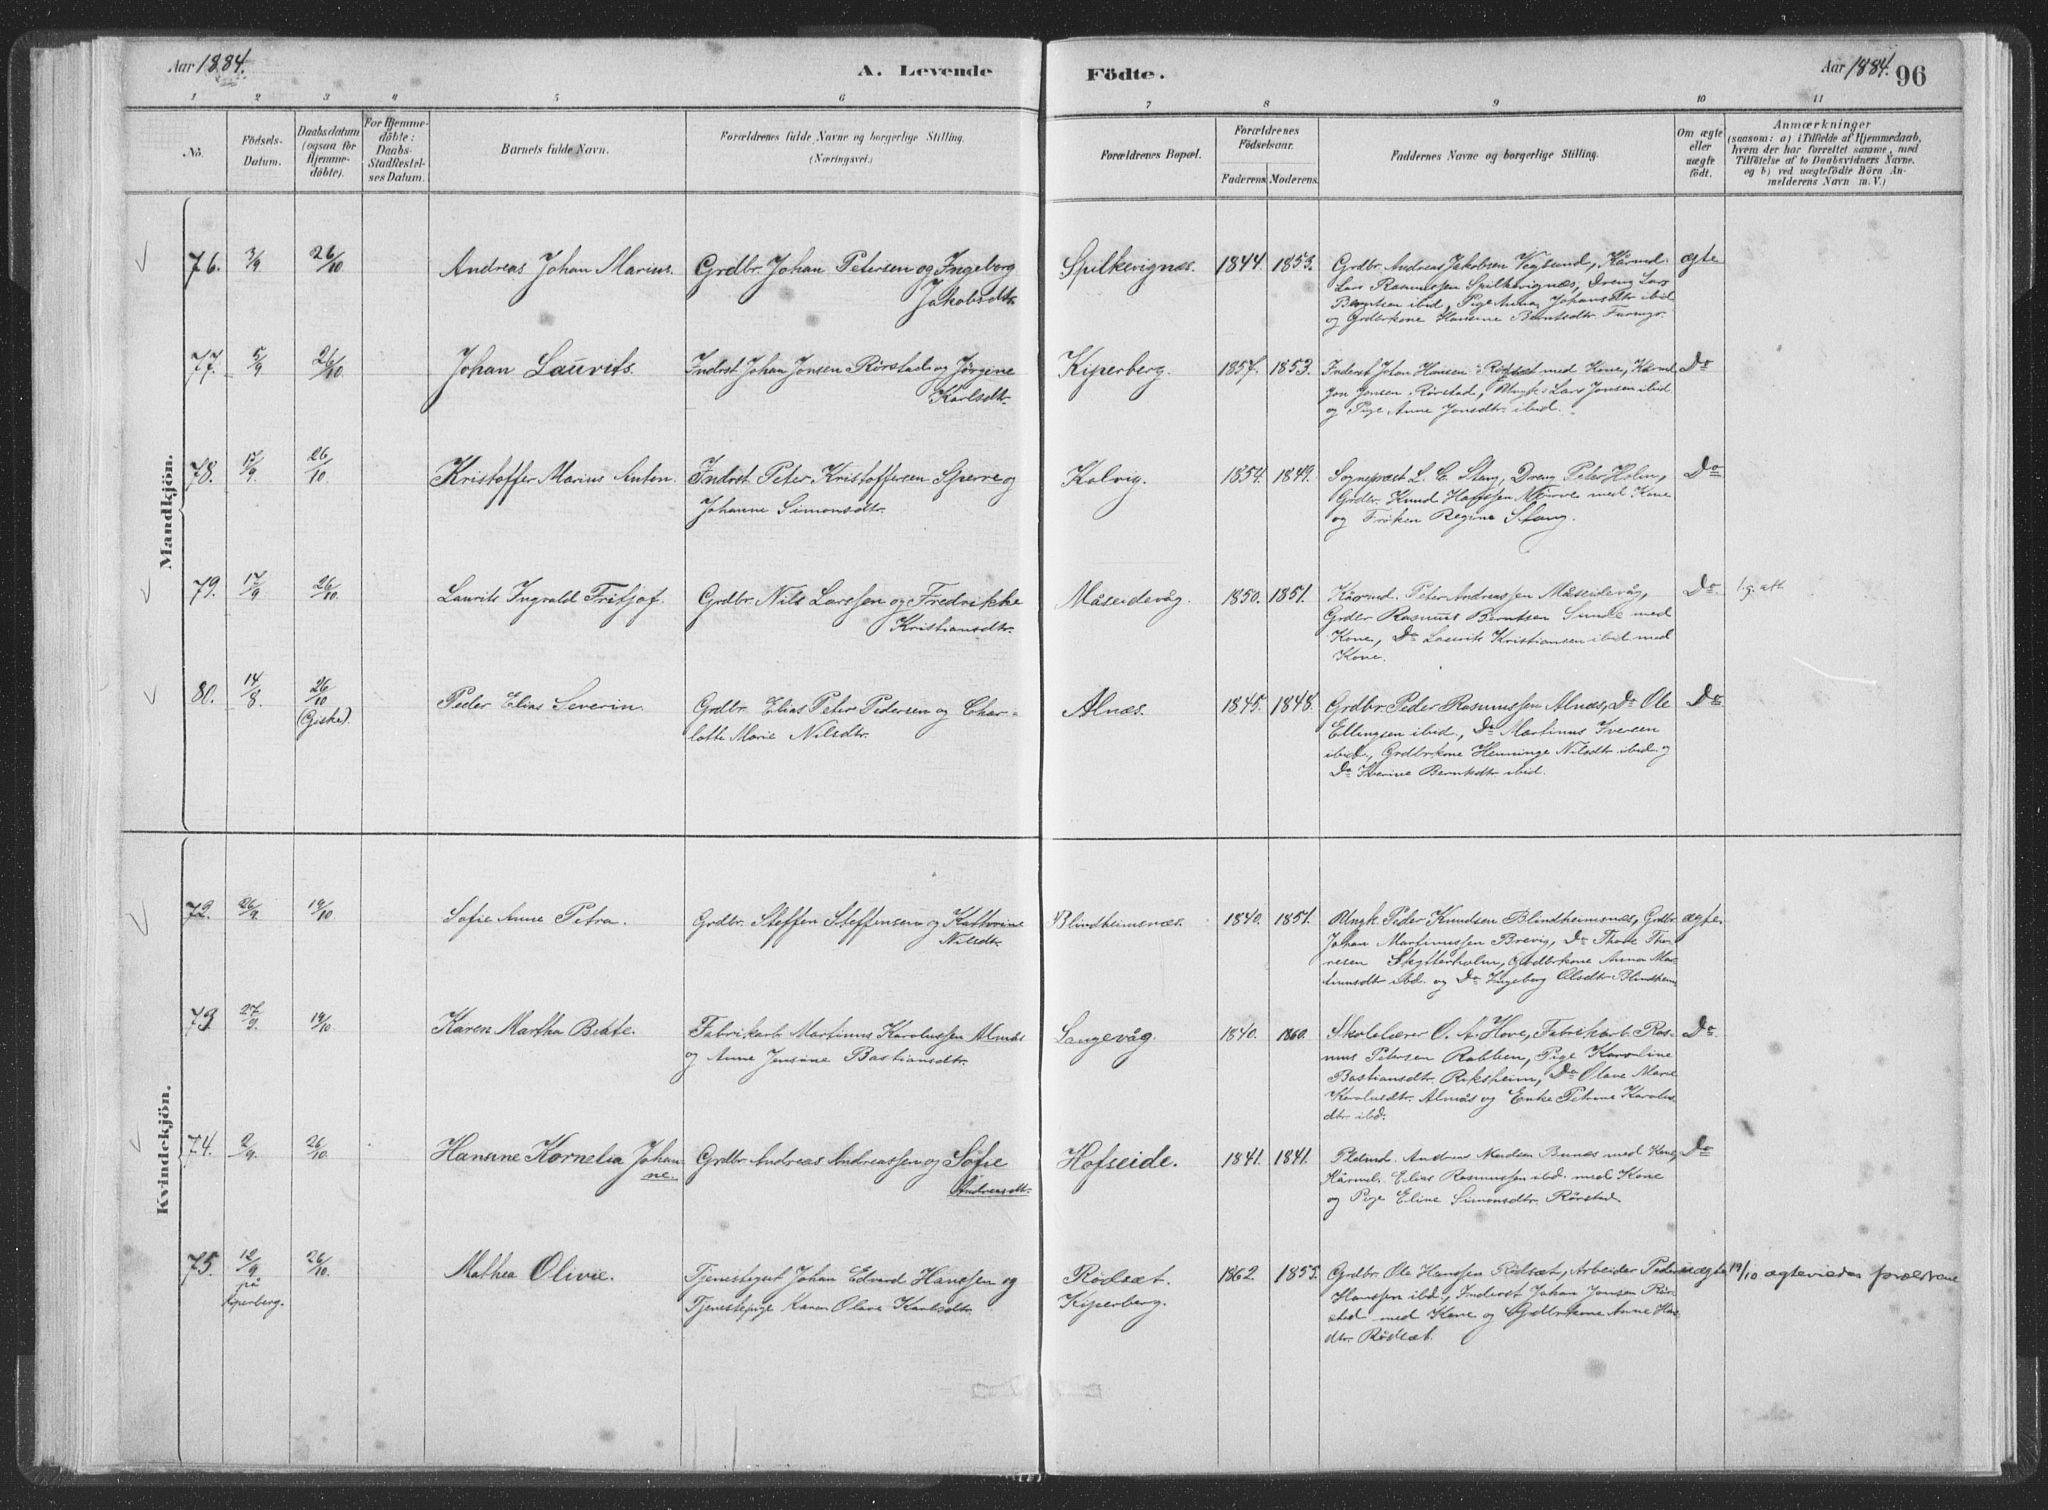 Aar 1884.
A. Levende
Födte.
Aar 1884. 96
1 2 3 4 5 6 7 8 9 10 11
No.
Födsels-
Datum.
Daabsdatum
(ogsaa for
Hjemme-
döbte).
For Hjemme-
döbte:
Daabs-
Stadfæstel-
ses Datum.
Barnets fulde Navn.
Forældrenes fulde Navne og borgerlige Stilling.
(Næringsvei.)
Forældrenes Bopæl.
Forældrenes
Födselsaar.
Faderens. Moderens.
Faddernes Navne og borgerlige Stilling.
Om ægte
eller
uægte
födt.
Anmærkninger
(saasom: a) i Tilfælde af Hjemmedaab,
hvem der har forrettet samme, med
Tilföielse af to Daabsvidners Navne.
og b) ved uægtefödte Börn An-
melderens Navn m. V.)
Mandkjön.
76. 3/9 26/10 Andreas Johan Marius. Grdbr. Johan Petersen og Ingeborg
Jakobsdtr.
Spilkevignæs. 1844. 1853. Grdbr. Andreas Jakobsen Vegsund, Kårmd. ægte
Lars Rasmussen Spilkevignæs, Dreng Lars
Berntsen ibid, Pige Anna Johansdtr ibid
og Grdbrkone Hansine Berntsdtr. Furmyr.
77. 5/9 26/10. Johan Laurits. Indrst Johan Jonsen Rörstad og Jørgine
Karlsdtr.
Kiperberg. 1857. 1853. Inderst Johan Hansen Rødsæt med Kone, Kårmd Do
Jon Jonsen Rörstad, Ungk. Lars Jonsen ibid
og Pige Anne Jonsdtr ibid.
78. 17/9. 26/10 Kristoffer Marius Anton. Indrst. Peter Kristoffersen Sperre og
Johanne Simonsdtr.
Kolvig. 1854. 1849. Sognepræst L. C. Stang, Dreng Peter Holm, Do
Grdbr. Knud Hanssen med Kone
og Frøken Regine Stang.
79. 17/9 26/10. Laurits Ingvald Fritjof. Grdbr. Nils Larssen og Fredrikke
Kristiansdtr.
Måseidevåg. 1850. 1851. Kårmd. Peter Andreassen Måseidevåg, Do
Grdbr Rasmus Berntsen Sunde med
Kone, Do Laurits Kristiansen ibid med
Kone.
80. 14/8. 26/10
(Giske).
Peder Elias Severin. Grdbr. Elias Peter Pedersen og Char-
lotte Marie Nilsdtr.
Alnæs. 1845. 1848. Grdbr. Peder Rasmussen Alnæs, Do Ole Do
Ellingsen ibid, Do Martinus Iversen
ibid, Grdbrkone Henninge Nilsdtr ibid. og
Do Berntsdtr ibid.
Kvindekjön.
72. 26/9. 19/10 Sofie Anne Petra. Grdbr. Steffen Steffensen og Kathrine
Nilsdtr.
Blindheimsnæs. 1840. 1851. Ungk. Peder Knudsen Blindheimsnæs, Grdbr ægte.
Johan Martinussen Brevig, Do Thore Tho-
resen Skytterholm, Grdbrkone Anna Mar-
tinusdtr ibd. og Do Ingeborg Olsdtr Blindheim
73 27/9. 19/10 Karen Martha Beate. Fabrikarb. Martinus Karolussen Almås
og Anne Jensine Bastiansdtr.
Langevåg. 1840. 1860. Skolelærer O. A. Hove, Fabrikarb. Ras- Do.
mus Petersen Rabben, Pige Karoline
Bastiansdtr. Riksheim, Do Olave Marie
Karolusdtr. Almås og Enke Petrine Karolus-
dtr ibd.
74. 2/9. 26/10. Hansine Kornelia Johan-
ne.
Grdbr Andreas Andreassen og Sofie
Andreasdtr.
Hofseide. 1841. 1841. Andreas Bunæs med Kone, Do
Kårmd. Elias Rasmussen ibd. med Kone
og Pige Eline Simonsdtr. Rörstad
75. 12/9 26/10.
på
Kiperberg.
Mathea Olivie. Tjenestegut Johan Edvard Hanssen og
Tjenestepige Karen Olava Karlsdtr.
Rödsæt.
Kiperberg.
1862. 1855. Grdbr. Ole Hanssen Rödsæt, Arbeider Peder uægte 19/10 ægteviedes forældrene
Hanssen ibd., Inderst Johan Jonsen Rör-
stad med Kone og Grdbrkone Anne Has-
dtr. Rödsæt.